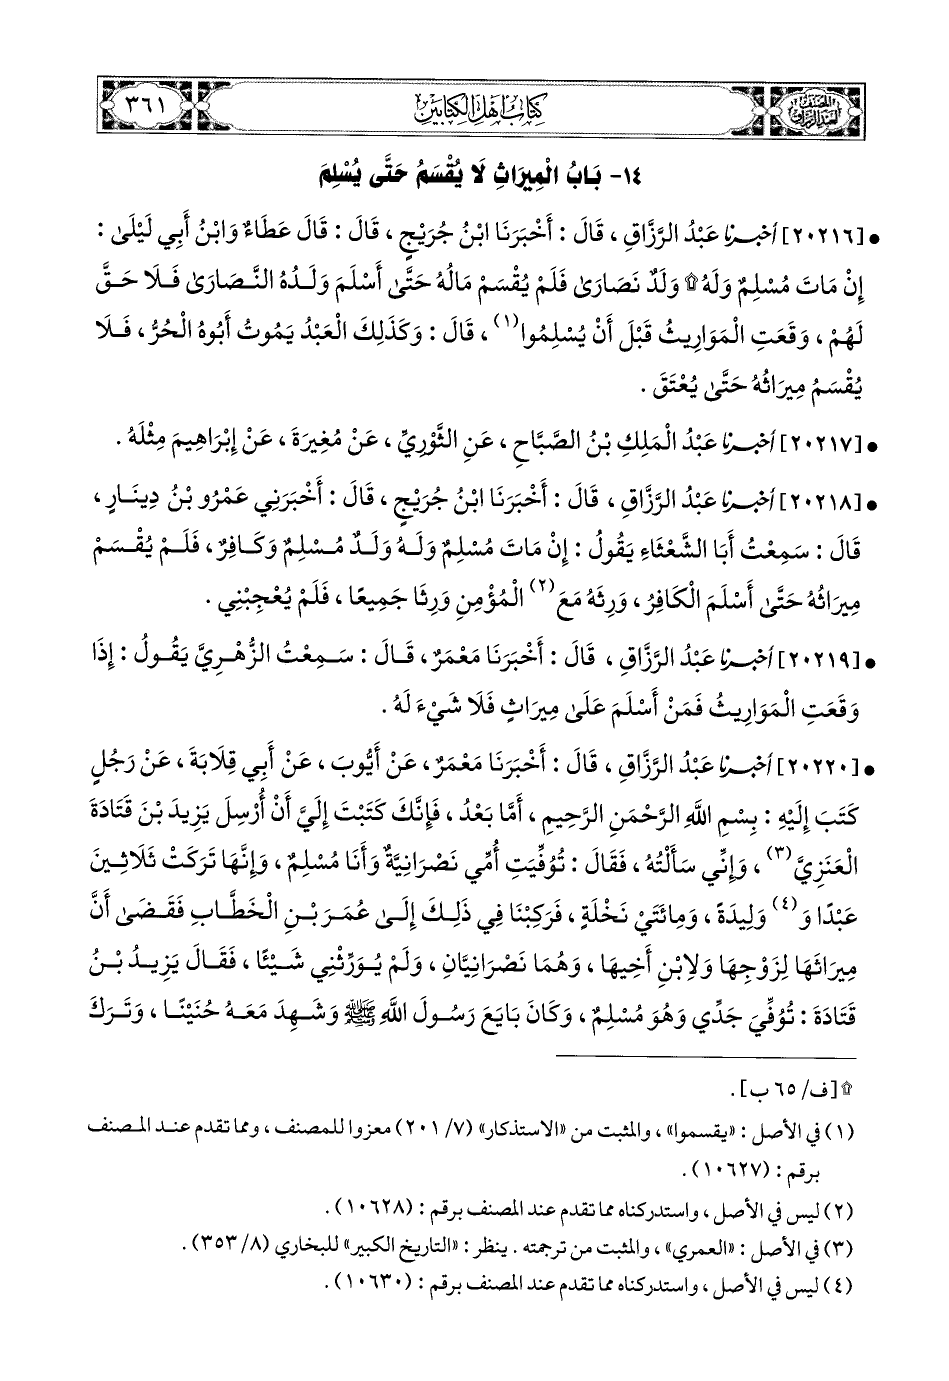 المصنف لعبد الرزاق
كتاب أهل الكتابين
٣٦١
١٤- بَابُ الْمِيرَاثِ لَا يُقْسَمُ حَتَّى يُسْلِمَ
• [٢٠٢١٦] أخبرنا عَبْدُ الرَّزَّاقِ ، قَالَ : أَخْبَرَنَا ابْنُ جُرَيْجٍ ، قَالَ : قَالَ عَطَاءٌ وَابْنُ أَبِي لَيْلَى :
إِنْ مَاتَ مُسْلِمٌ وَلَهُ ۩ وَلَدٌ نَصَارَى فَلَمْ يُقْسَمْ مَالُهُ حَتَّى أَسْلَمَ وَلَدُهُ النَّصَارَى فَلَا حَقَّ
لَهُمْ ، وَقَعَتِ الْمَوَارِيثُ قَبْلَ أَنْ يُسْلِمُوا(١) ، قَالَ : وَكَذَلِكَ الْعَبْدُ يَمُوتُ أَبُوهُ الْحُرُّ ، فَلَا
يُقْسَمُ مِيرَاثُهُ حَتَّى يُعْتَقَ .
• [٢٠٢١٧] أخبرنا عَبْدُ الْمَلِكِ بْنُ الصَّبَّاحِ ، عَنِ الثَّوْرِيِّ ، عَنْ مُغِيرَةَ ، عَنْ إِبْرَاهِيمَ مِثْلَهُ .
• [٢٠٢١٨] أخبرنا عَبْدُ الرَّزَّاقِ ، قَالَ : أَخْبَرَنَا ابْنُ جُرَيْجٍ ، قَالَ : أَخْبَرَنِي عَمْرُو بْنُ دِينَارٍ ،
قَالَ : سَمِعْتُ أَبَا الشَّعْثَاءِ يَقُولُ : إِنْ مَاتَ مُسْلِمٌ وَلَهُ وَلَدٌ مُسْلِمٌ وَكَافِرٌ ، فَلَمْ يُقْسَمْ
مِيرَاثُهُ حَتَّى أَسْلَمَ الْكَافِرُ ، وَرِثَهُ مَعَ(٢) الْمُؤْمِنِ وَرِثَا جَمِيعًا ، فَلَمْ يُعْجِبْنِي .
• [٢٠٢١٩] أخبرنا عَبْدُ الرَّزَّاقِ ، قَالَ : أَخْبَرَنَا مَعْمَرٌ ، قَالَ : سَمِعْتُ الزُّهْرِيَّ يَقُولُ : إِذَا
وَقَعَتِ الْمَوَارِيثُ فَمَنْ أَسْلَمَ عَلَى مِيرَاثٍ فَلَا شَيْءَ لَهُ .
• [٢٠٢٢٠] أخبرنا عَبْدُ الرَّزَّاقِ ، قَالَ : أَخْبَرَنَا مَعْمَرٌ ، عَنْ أَيُّوبَ ، عَنْ أَبِي قِلَابَةَ ، عَنْ رَجُلٍ
كَتَبَ إِلَيْهِ : بِسْمِ اللَّهِ الرَّحْمَنِ الرَّحِيمِ ، أَمَّا بَعْدُ ، فَإِنَّكَ كَتَبْتَ إِلَيَّ أَنْ أُرْسِلَ يَزِيدَ بْنَ قَتَادَةَ
الْعَنَزِيَّ(٣) ، وَإِنِّي سَأَلْتُهُ ، فَقَالَ : تُوُفِّيَتِ أُمِّي نَصْرَانِيَّةٌ وَأَنَا مُسْلِمٌ ، وَإِنَّهَا تَرَكَتْ ثَلَاثِينَ
عَبْدًا وَ(٤) وَلِيدَةً ، وَمِائَتَيْ نَخْلَةٍ ، فَرَكِبْنَا فِي ذَلِكَ إِلَى عُمَرَ بْنِ الْخَطَّابِ فَقَضَى أَنَّ
مِيرَاثَهَا لِزَوْجِهَا وَلِابْنِ أَخِيهَا ، وَهُمَا نَصْرَانِيَّانِ ، وَلَمْ يُوَرِّثْنِي شَيْئًا ، فَقَالَ يَزِيدُ بْنُ
قَتَادَةَ : تُوُفِّيَ جَدِّي وَهُوَ مُسْلِمٌ ، وَكَانَ بَايَعَ رَسُولَ اللَّهِ ﷺ وَشَهِدَ مَعَهُ حُنَيْنًا ، وَتَرَكَ
۩ [ف/ ٦٥ ب] .
(١) في الأصل : «يقسموا» ، والمثبت من «الاستذكار» (٧/ ٢٠١) معزوا للمصنف ، ومما تقدم عند المصنف
برقم : (١٠٦٢٧) .
(٢) ليس في الأصل ، واستدركناه مما تقدم عند المصنف برقم : (١٠٦٢٨) .
(٣) في الأصل : «العمري» ، والمثبت من ترجمته . ينظر : «التاريخ الكبير» للبخاري (٨/ ٣٥٣) .
(٤) ليس في الأصل ، واستدركناه مما تقدم عند المصنف برقم : (١٠٦٣٠) .